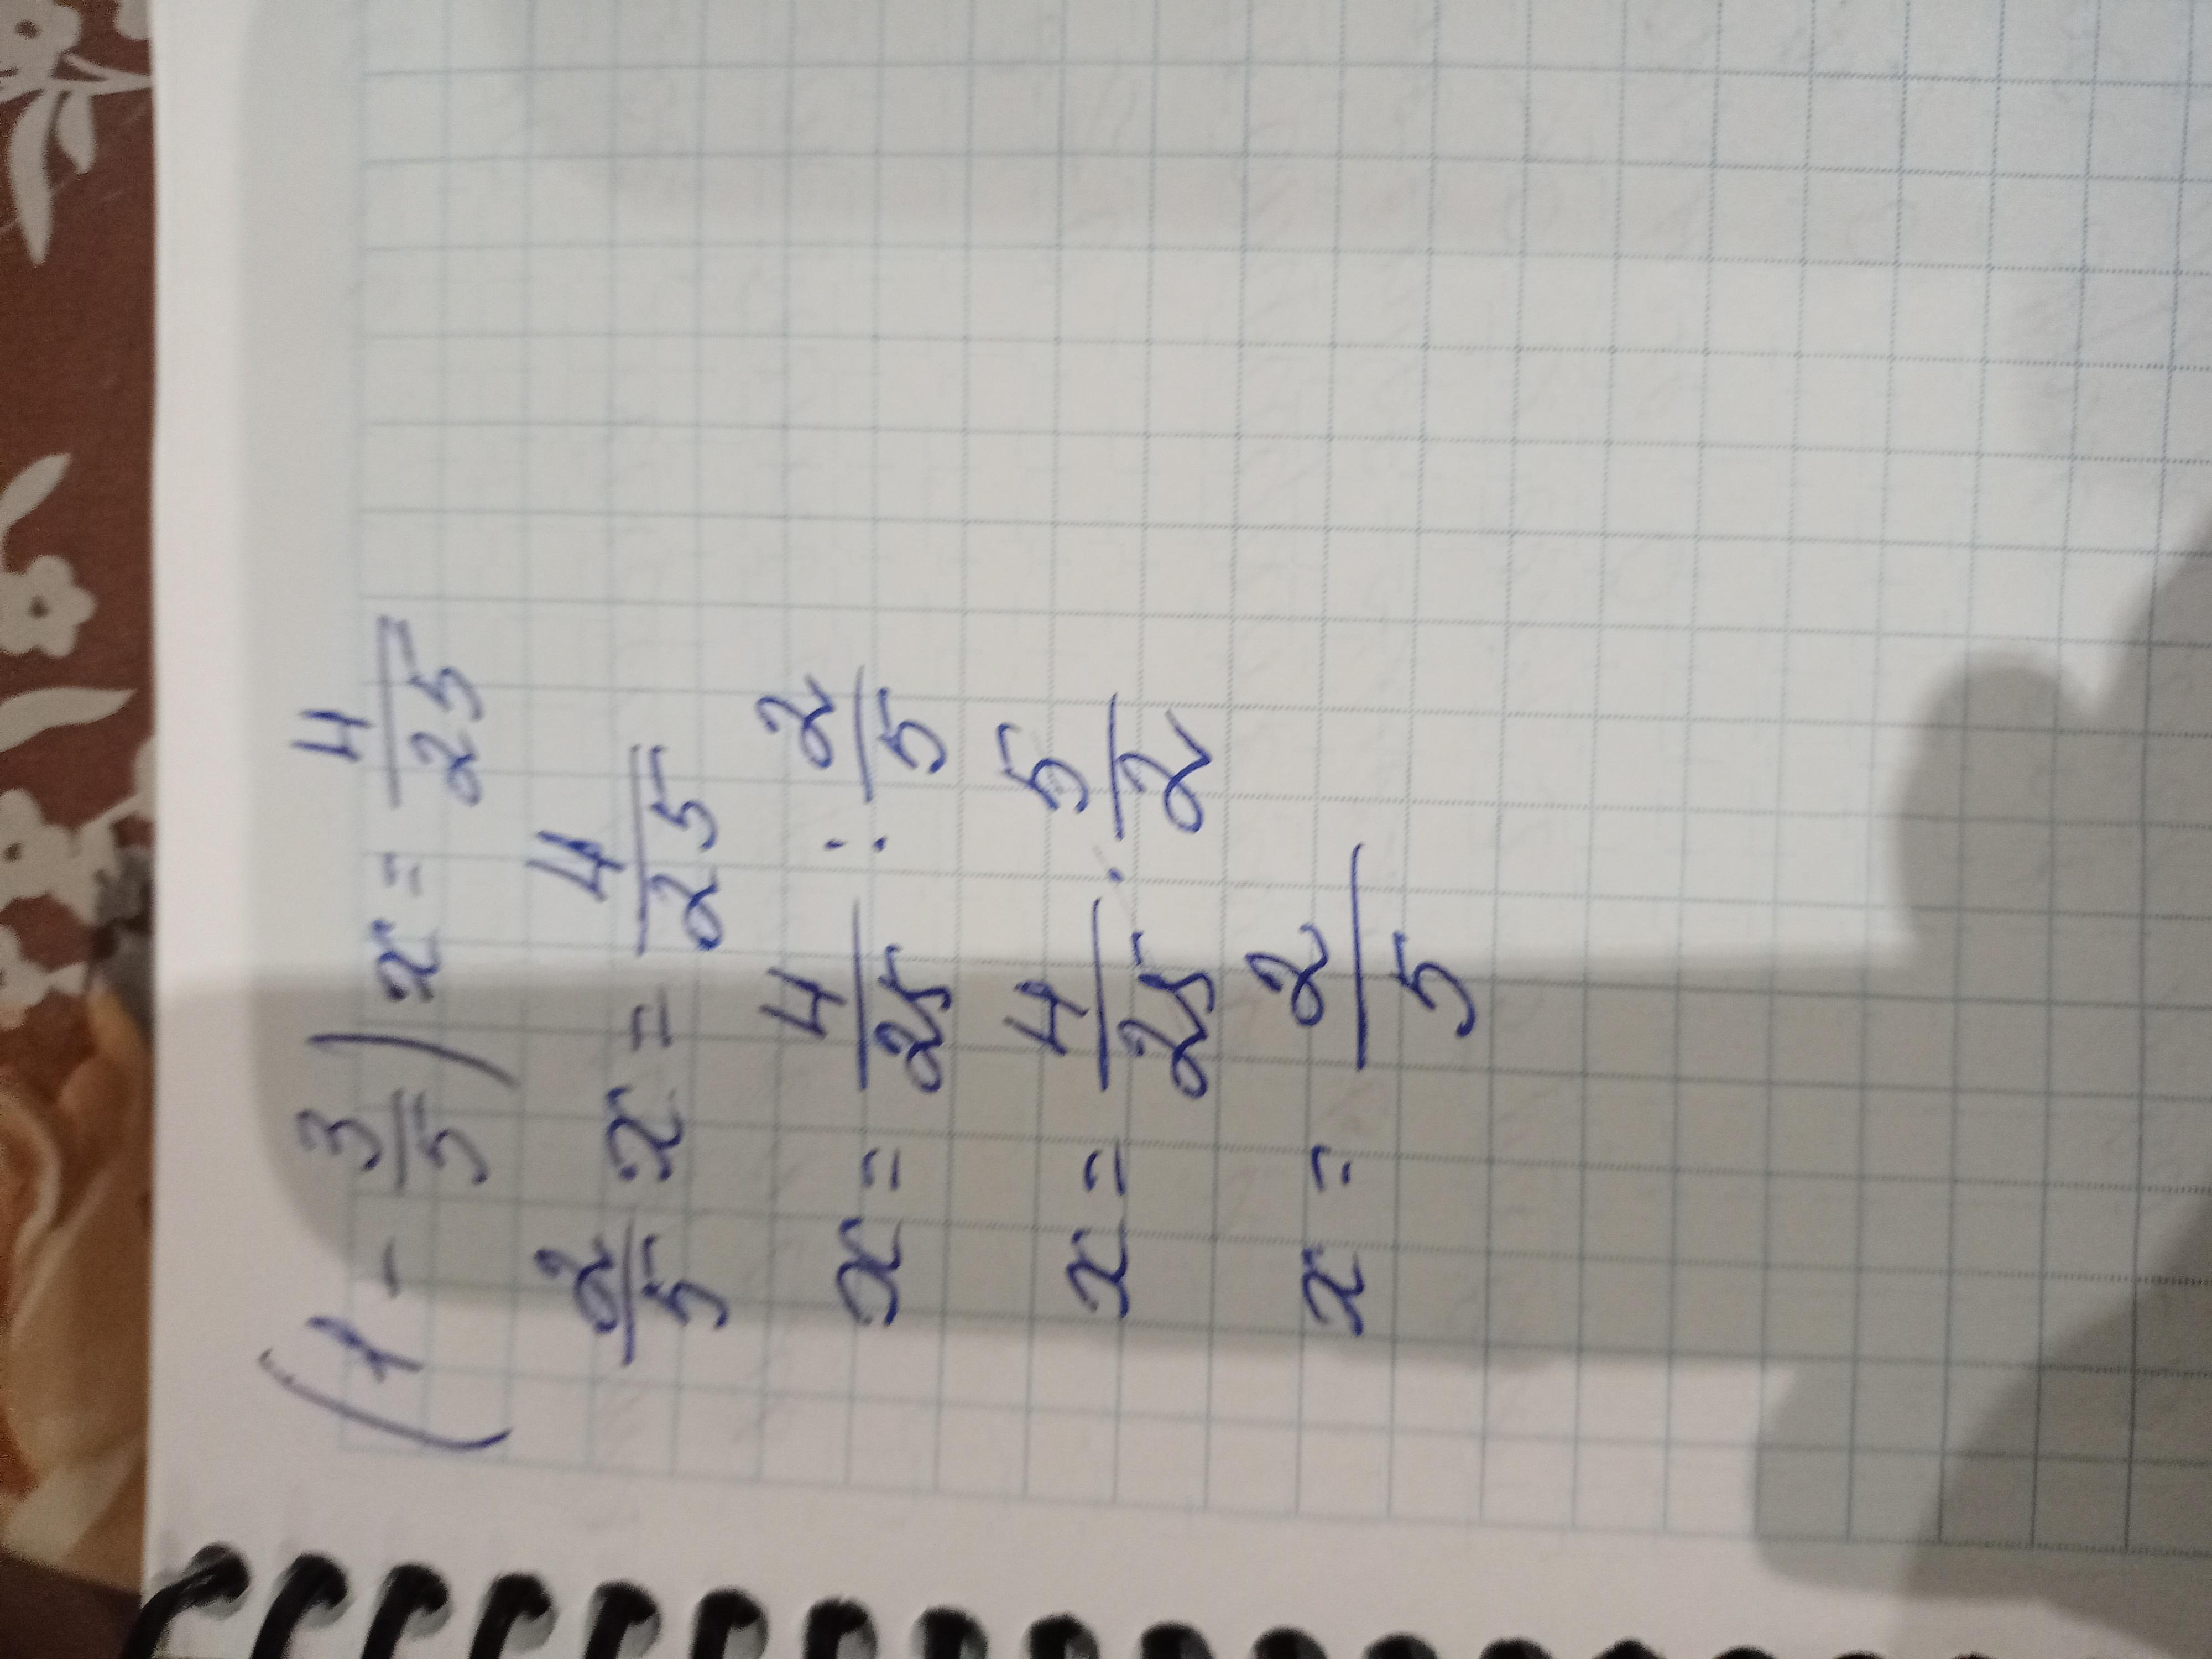 (1 - 3/5) x = 4/25
2/5 x = 4/25
x = 4/25 : 2/5
x = 4/25 · 5/2
x = 2/5